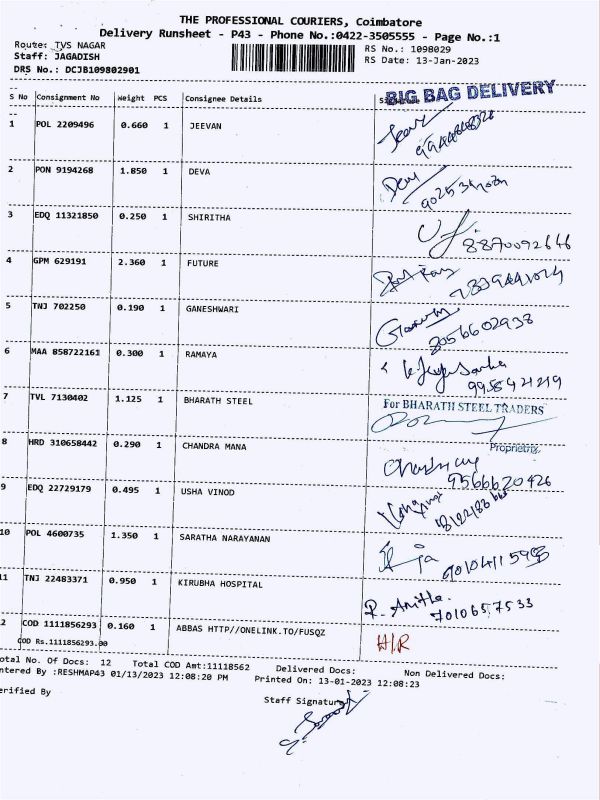 THE PROFESSIONAL COURIERS, Coimbatore
Delivery Runsheet - P43 - Phone No.:0422-3505555 - Page No.:1
Route: TVS NAGAR
RS No.: 1098029
Staff: JAGADISH
RS Date: 13-Jan-2023
DRS No.: DCJB109802901
BIG BAG DELIVERY
S No Consignment No Weight PCS Consignee Details
1 POL 2209496 0.660 1 JEEVAN
2 PON 9194268 1.850 1 DEVA
3 EDQ 11321850 0.250 1 SHIRITHA
8870092646
4 GPM 629191 2.360 1 FUTURE
5 TNJ 702250 0.190 1 GANESHWARI
8056602938
6 MAA 858722161 0.300 1 RAMAYA
9958421219
7 TVL 7130402 1.125 1 BHARATH STEEL
For BHARATH STEEL TRADERS
Proprietrix
8 HRD 310658442 0.290 1 CHANDRA MANA
9566620426
9 EDQ 22729179 0.495 1 USHA VINOD
10 POL 4600735 1.350 1 SARATHA NARAYANAN
11 TNJ 22483371 0.950 1 KIRUBHA HOSPITAL
R. Anitha.
7010657533
2 COD 1111856293 0.160 1 ABBAS HTTP//ONELINK.TO/FUSQZ
COD Rs.1111856293.00
H/R
otal No. Of Docs: 12 Total COD Amt:11118562 Delivered Docs: Non Delivered Docs:
ntered By :RESHMAP43 01/13/2023 12:08:20 PM Printed On: 13-01-2023 12:08:23
erified By
Staff Signature